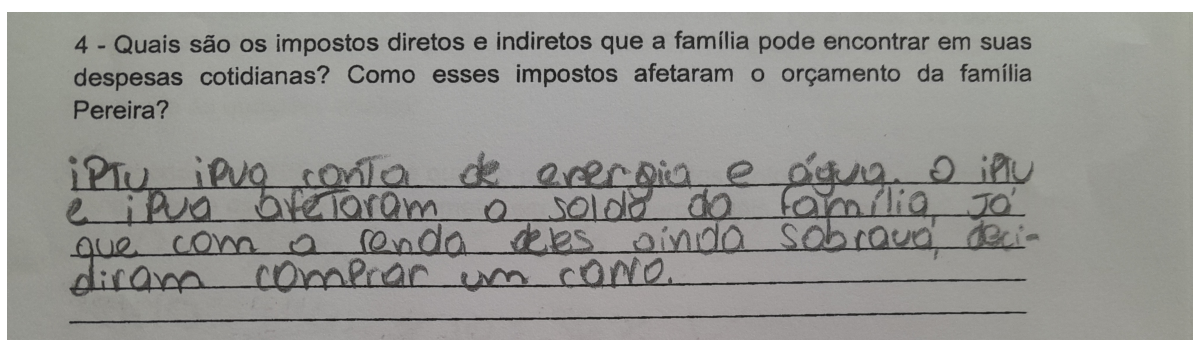 4 - Quais são os impostos diretos e indiretos que a família pode encontrar em suas
despesas cotidianas? Como esses impostos afetaram o orçamento da família
Pereira?
iPTU, iPVa conta de energia e água. O iPtu
e iPva afetaram o saldo da família, Já
que com a renda deles ainda sobrava, deci-
diram comprar um carro.